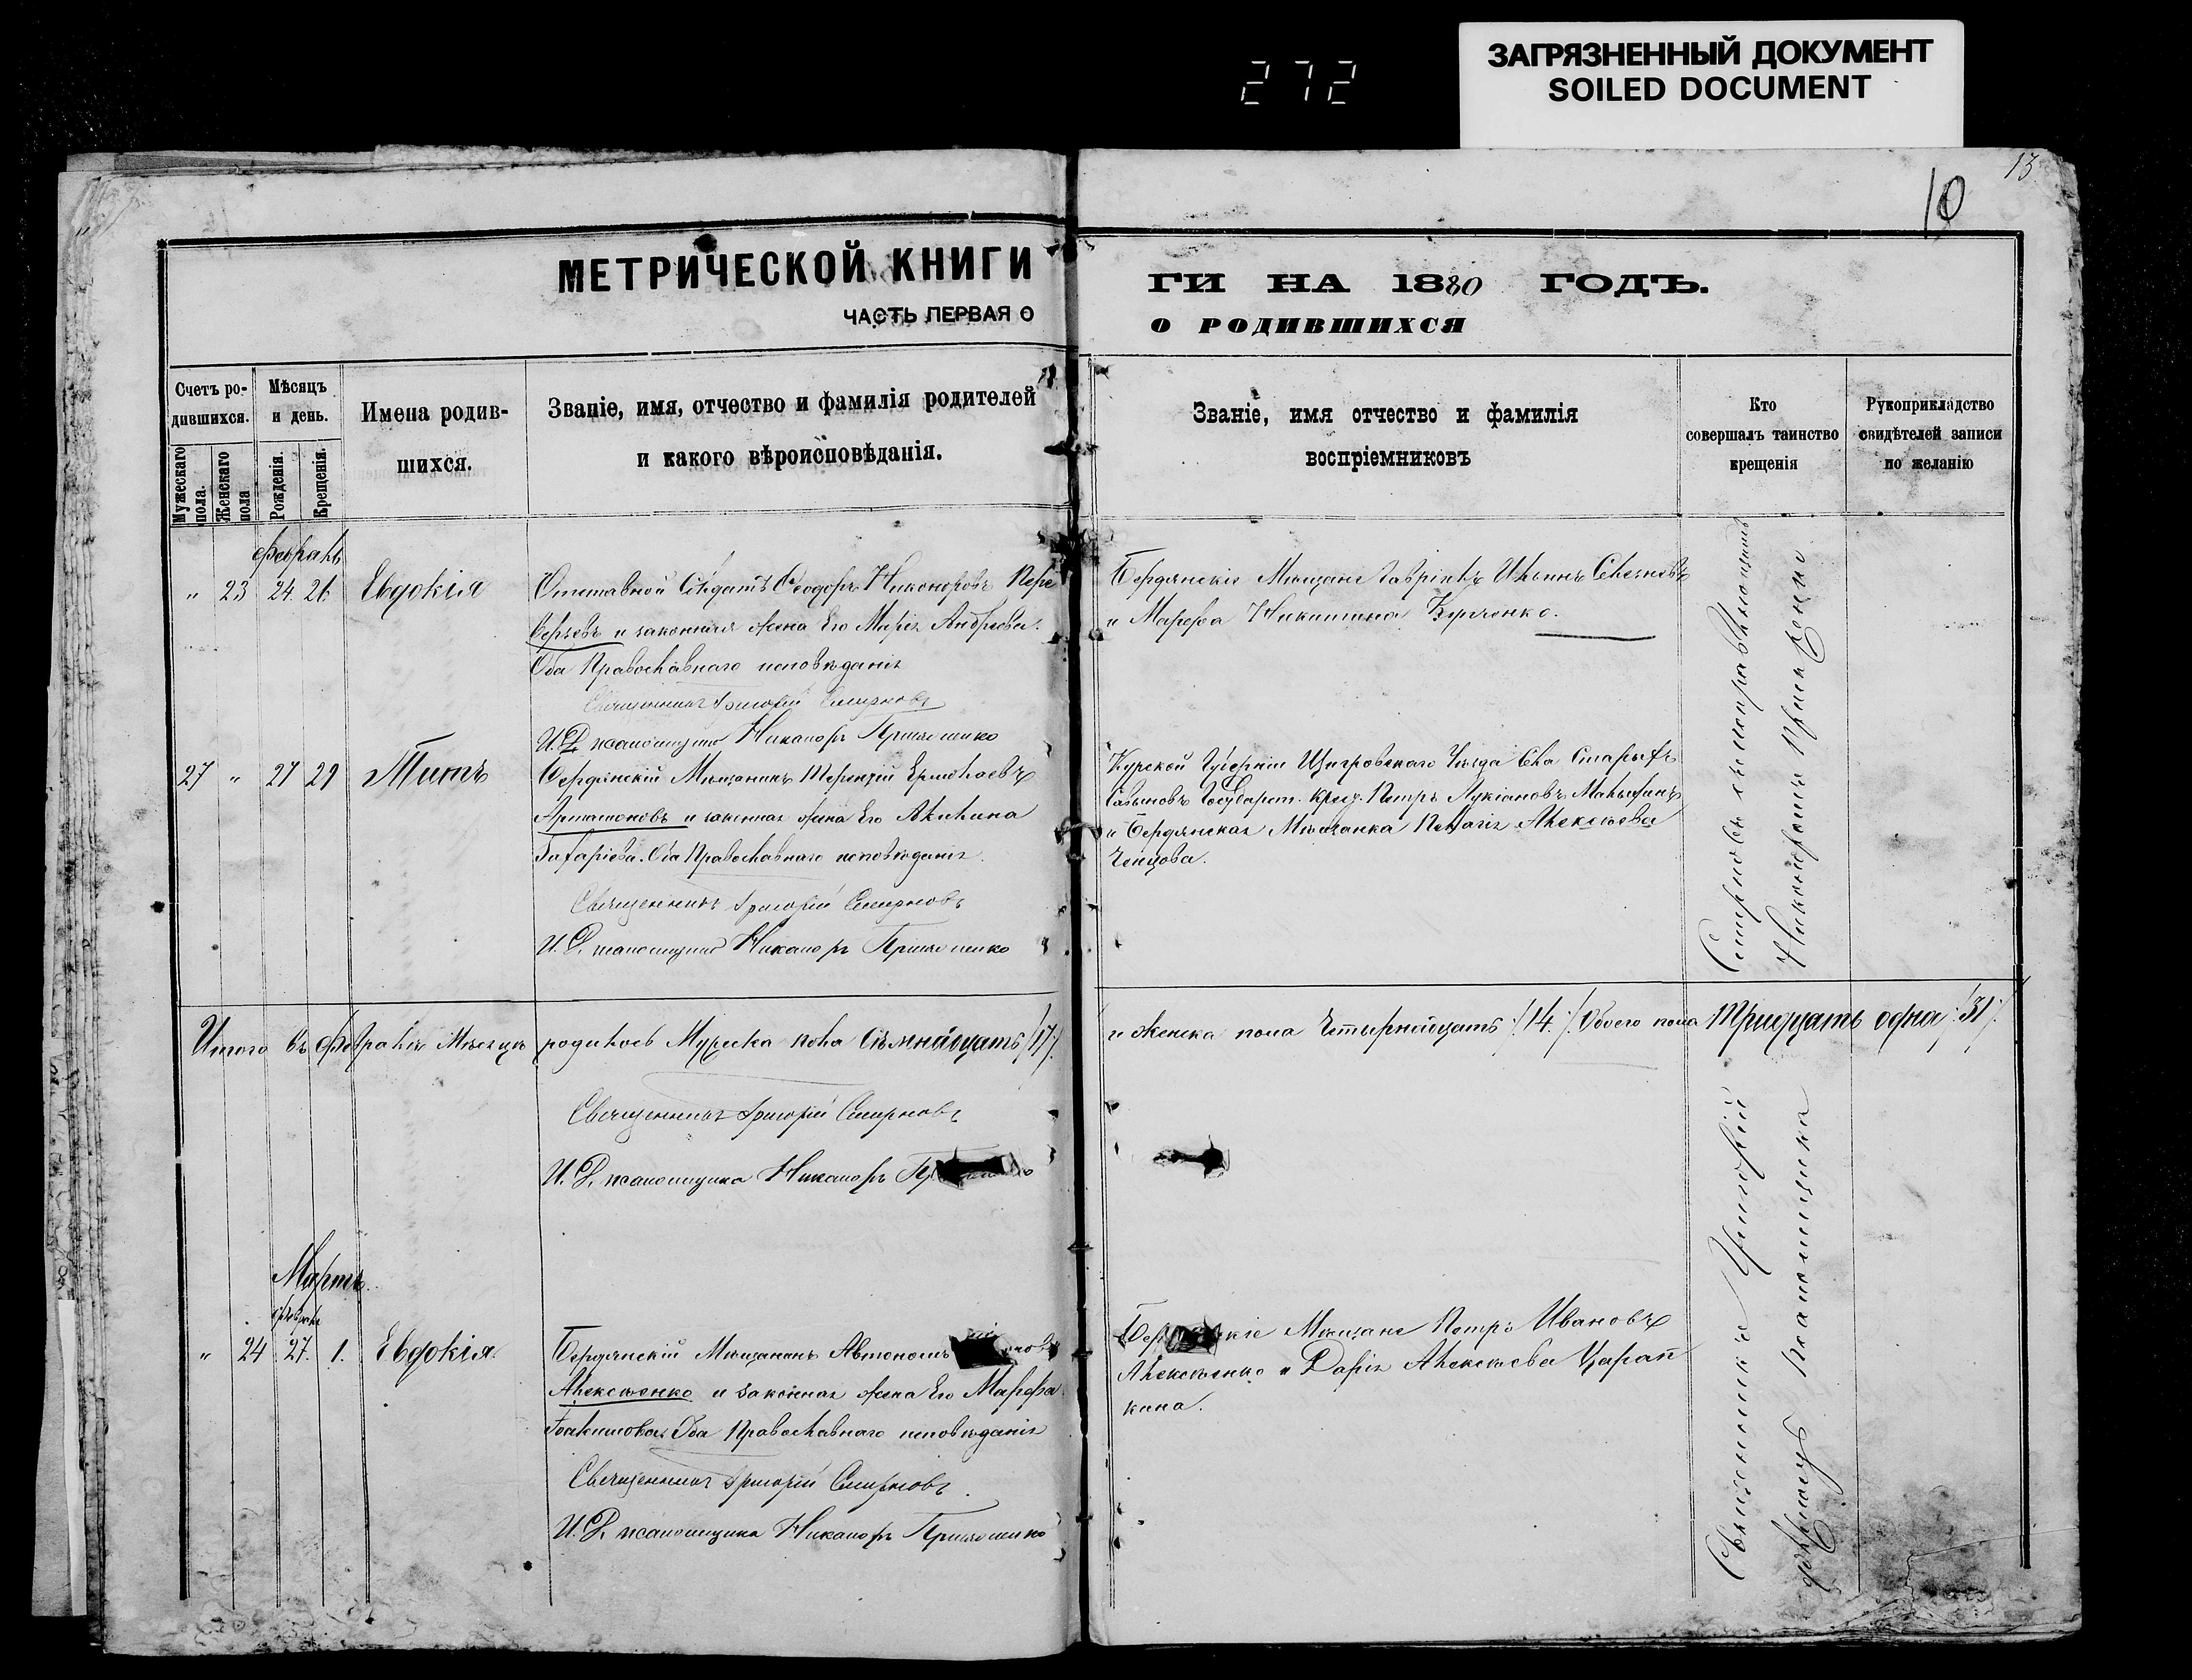 272
ЗАГРЯЗНЕННЫЙ ДОКУМЕНТ
SOILED DOCUMENT
13
10
МЕТРИЧЕСКОЙ КНИГИ
ЧАСТЬ ПЕРВАЯ О
Счетъ ро-
дившихся.
Мужескаго пола.
Женскаго пола
Мѣсяцъ
и день.
Рожденія.
Крещенія.
Имена родив-
шихся.
Званіе, имя, отчество и фамилія родителей
и какого вѣроисповѣданія.
ГИ НА 1880 ГОДЪ.
О РОДИВШИХСЯ
Званіе, имя отчество и фамилія
воспріемниковъ
Кто
совершалъ таинство
крещенія
Рукоприкладство
свидѣтелей записи
по желанію
„ 23 24. 26. Евдокія
Отставной Солдатъ Ѳеодоръ Никоноровъ
и законная жена Его Марія Андреева.
Оба Православнаго исповѣданія
Священникъ Григорій Смирновъ
И. Д. псаломщика Никаноръ
Бердянскіе Мѣщане Ильинъ
и Марфа Никитина
27 „ 27 29 Титъ
Бердянскій Мѣщанинъ Терентій Ермолаевъ
Артамоновъ и законная жена Его Акилина
Захаріева. Оба Православнаго исповѣданія.
Священникъ Григорій Смирновъ
И. Д. псаломщика Никаноръ
Курской Губерніи Щигровскаго Уѣзда Села Старыхъ
Савыновъ Государст. крест. Петръ Лукіановъ
и Бердянская Мѣщанка Пелагія Алексѣева
Ченцова.
Итого въ Февралѣ Мѣсяцѣ родилось Мужеска пола Сѣмнадцать /17/.
и Женска пола Четырнадцать /14./ Обоего пола Тридцать одна /31/.
Священникъ Григорій Смирновъ
И. Д. псаломщика Никаноръ
Мартъ.
„ 24 27. 1. Евдокія.
Бердянскій Мѣщанинъ Автономъ
Алексѣенко и законная жена Его Марфа
Іоакимова. Оба Православнаго исповѣданія
Священникъ Григорій Смирновъ.
И. Д. псаломщика Никаноръ
Мѣщане Петръ Ивановъ
Алексѣенко и Дарія Алексѣева Царап
кина.
Священникъ Григорій
Смирновъ
псаломщика
Никаноромъ